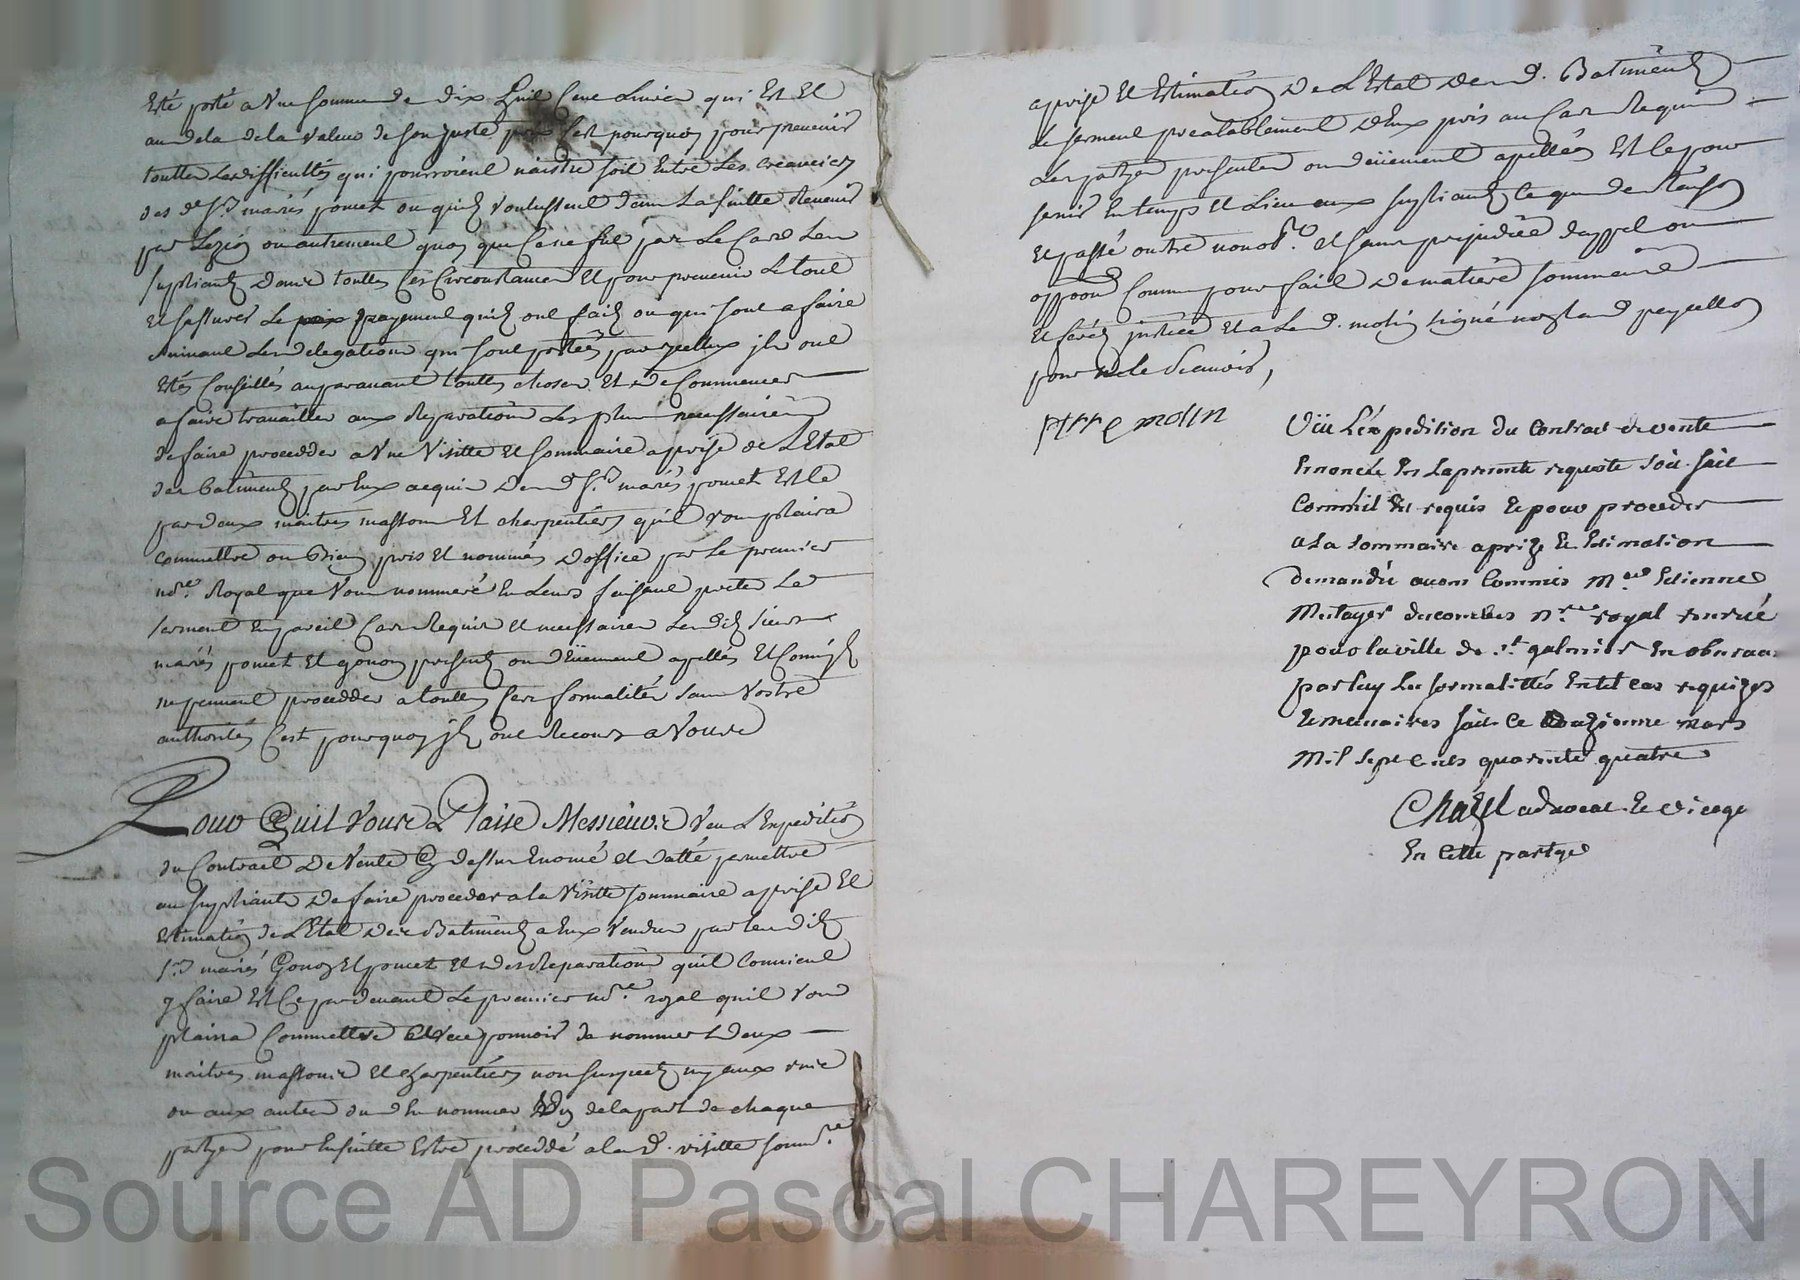 Esté porté a Une somme de dix huit Cent Livres qui Est Et
au dela de la valeur de son juste prix C'est pourquoy pour prevenir
touttes Les difficultés qui pourroient naistre soit Entre Les creanciers
des dt Srs mariés pomet ou quils voulussent dans La suitte Revenir
par Lezion ou autrement quoy que Ce ne fut par Le Cas Les
suppliants dans touttes Ces Circonstances Et pour prevenir Le tout
Et assurer Le payement quils ont faits ou qui sont a faire
suivant Les delegations qui sont portées par ycelluy ils ont
Estés Conseillés auparavant touttes choses Et de Commencer
a faire travailler aux Reparations Les plus necessaires
de faire procedder a Une Visitte Et sommaire aprise de L'Etat
des batiments par Eux acquis des d Srs mariés pomet Et Ce
par deux maitres massons Et charpentiers quil vous plaira
commettre ou Bien pris et nommés d'office par Le premier
nore. Royal que Vous nommeré En Leurs faisant preter Le
serment En pareil Cas Requis et necessaires Les dits sieurs
mariés pomet Et gonon presents ou düement apellés Et Comme ils
ne peuvent procedder a touttes Ces formalités sans Vostre
authorités C'est pourquoy ils ont Recours a Vous
Pour Quil Vous Plaise Messieurs Veu L'Expedition
du Contract De Vente Cy dessus Enoncé et datté permettre
au suppliants De faire proceder a la Visitte sommaire aprise Et
Estimation de L'Etat Des Batiments a Eux Vendus par Les dits
Srs mariés Gonon Et pomet Et des Reparations quil Convient
y faire Et Ce par devant Le premier nore. royal quil Vous
plaira Commettre avec pouvoir de nommer deux
maitres massons et charpentiers non suspects ny aux uns
ou aux autres ou d'En nommer Un de la part de chaque
partyes pour Ensuitte Estre procéddé a la d. visitte somre
aprise Et Estimation De L'Estat des d. Batiments
Le serment prealablement d'Eux pris au Cas Requis
Les partyes presentes ou düement apellées Et Ce pour
servir En temps Et Lieu aux suppliants Ce que de Raison
Et passé outre nonobt. et sans prejudice d'appel ou
oppoon Comme pour fait De matiere sommaire
Et ferés justice Et a Le d. motin signé non Le d peycellon
pour ne Le scavoir,
pierre motin
Vüe L'expedition du contract de vente
Enoncée En La presente requeste soit fait
Comme il Est requis Et pour proceder
a La sommaire aprize Et Estimation
demandée avons Commis Me Estienne
Metayer descombes nre royal reservé
pour la ville de st galmier En observant
par luy Les formalittés En tel cas requizes
Et necessaires fait ce douzieme mars
Mil sept cents quarente quatre
Chazel advocat Et vicege
En cette partye
Source AD Pascal CHAREYRON